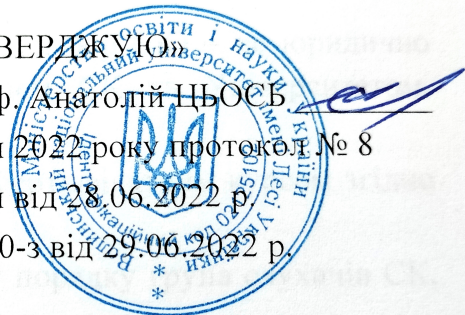 ВЕРДЖУЮ»
ф. Анатолій ЦЬОСЬ
2022 року протокол № 8
від 28.06.2022 р.
0-з від 29.06.2022 р.
Міністерство освіти і науки України
Волинський національний університет імені Лесі Українки
Ідентифікаційний код